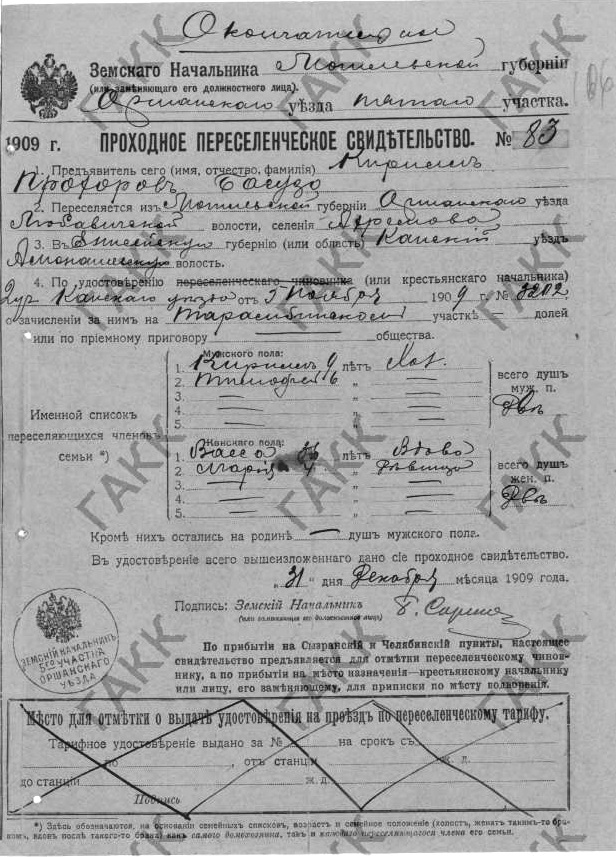 Окончательное
Земскаго Начальника Могилевской губернiи
(или замѣняющаго его должностного лица).
Оршанскаго уѣзда пятаго участка.
1909 г. ПРОХОДНОЕ ПЕРЕСЕЛЕНЧЕСКОЕ СВИДѢТЕЛЬСТВО. № 83
1. Предъявитель сего (имя, отчество, фамилiя) Кириллъ
Прохоровъ
2. Переселяется изъ Могилевской губернiи Оршанскаго уѣзда
Любавичской волости, селенiя
3. Въ Енисейскую губернiю (или область) Канскiй уѣздъ
волость.
4. По удостовѣренiю переселенческаго чиновника (или крестьянскаго начальника)
2 уч. Канскаго уѣзда отъ 5 Ноября 1909 г. № 3202
о зачисленiи за нимъ на участкѣ — долей
или по прiемному приговору — общества.
Мужского пола:
1. Кириллъ 9 лѣтъ Хол.
2. Тимофей 6 „ —
3. — „ —
4. — „ —
5. — „ —
всего душъ
муж. п.
Двѣ
Именной списокъ
переселяющихся членовъ
семьи *)
Женскаго пола:
1. Васса 36 лѣтъ Вдова
2. Марiя 4 „ Дѣвица
3. — „ —
4. — „ —
5. — „ —
всего душъ
жен. п.
Двѣ
Кромѣ нихъ остались на родинѣ — душъ мужского пола.
Въ удостовѣренiе всего вышеизложеннаго дано сiе проходное свидѣтельство.
„31" дня Декабря мѣсяца 1909 года.
Подпись: Земскiй Начальникъ
(или замѣняющее его должностное лицо)
ЗЕМСКIЙ НАЧАЛЬНИКЪ
5го УЧАСТКА
ОРШАНСКАГО
УѢЗДА
По прибытiи на Сызранскiй и Челябинскiй пункты, настоящее
свидѣтельство предъявляется для отмѣтки переселенческому чинов-
нику, а по прибытiи на мѣсто назначенiя—крестьянскому начальнику
или лицу, его замѣняющему, для приписки по мѣсту водворенiя.
Мѣсто для отмѣтки о выдачѣ удостовѣренiя на проѣздъ по переселенческому тарифу.
Тарифное удостовѣренiе выдано за № на срокъ съ
по , отъ станцiи ж. д.
до станцiи ж. д.
Подпись
*) Здѣсь обозначаются, на основанiи семейныхъ списковъ, возрастъ и семейное положенiе (холостъ, женатъ такимъ-то бра-
комъ, вдовъ послѣ такого-то брака) какъ самого домохозяина, такъ и каждаго переселяющагося члена его семьи.
ГАКК
ГАКК
ГАКК
ГАКК
ГАКК
ГАКК
ГАКК
ГАКК
ГАКК
ГАКК
ГАКК
ГАКК